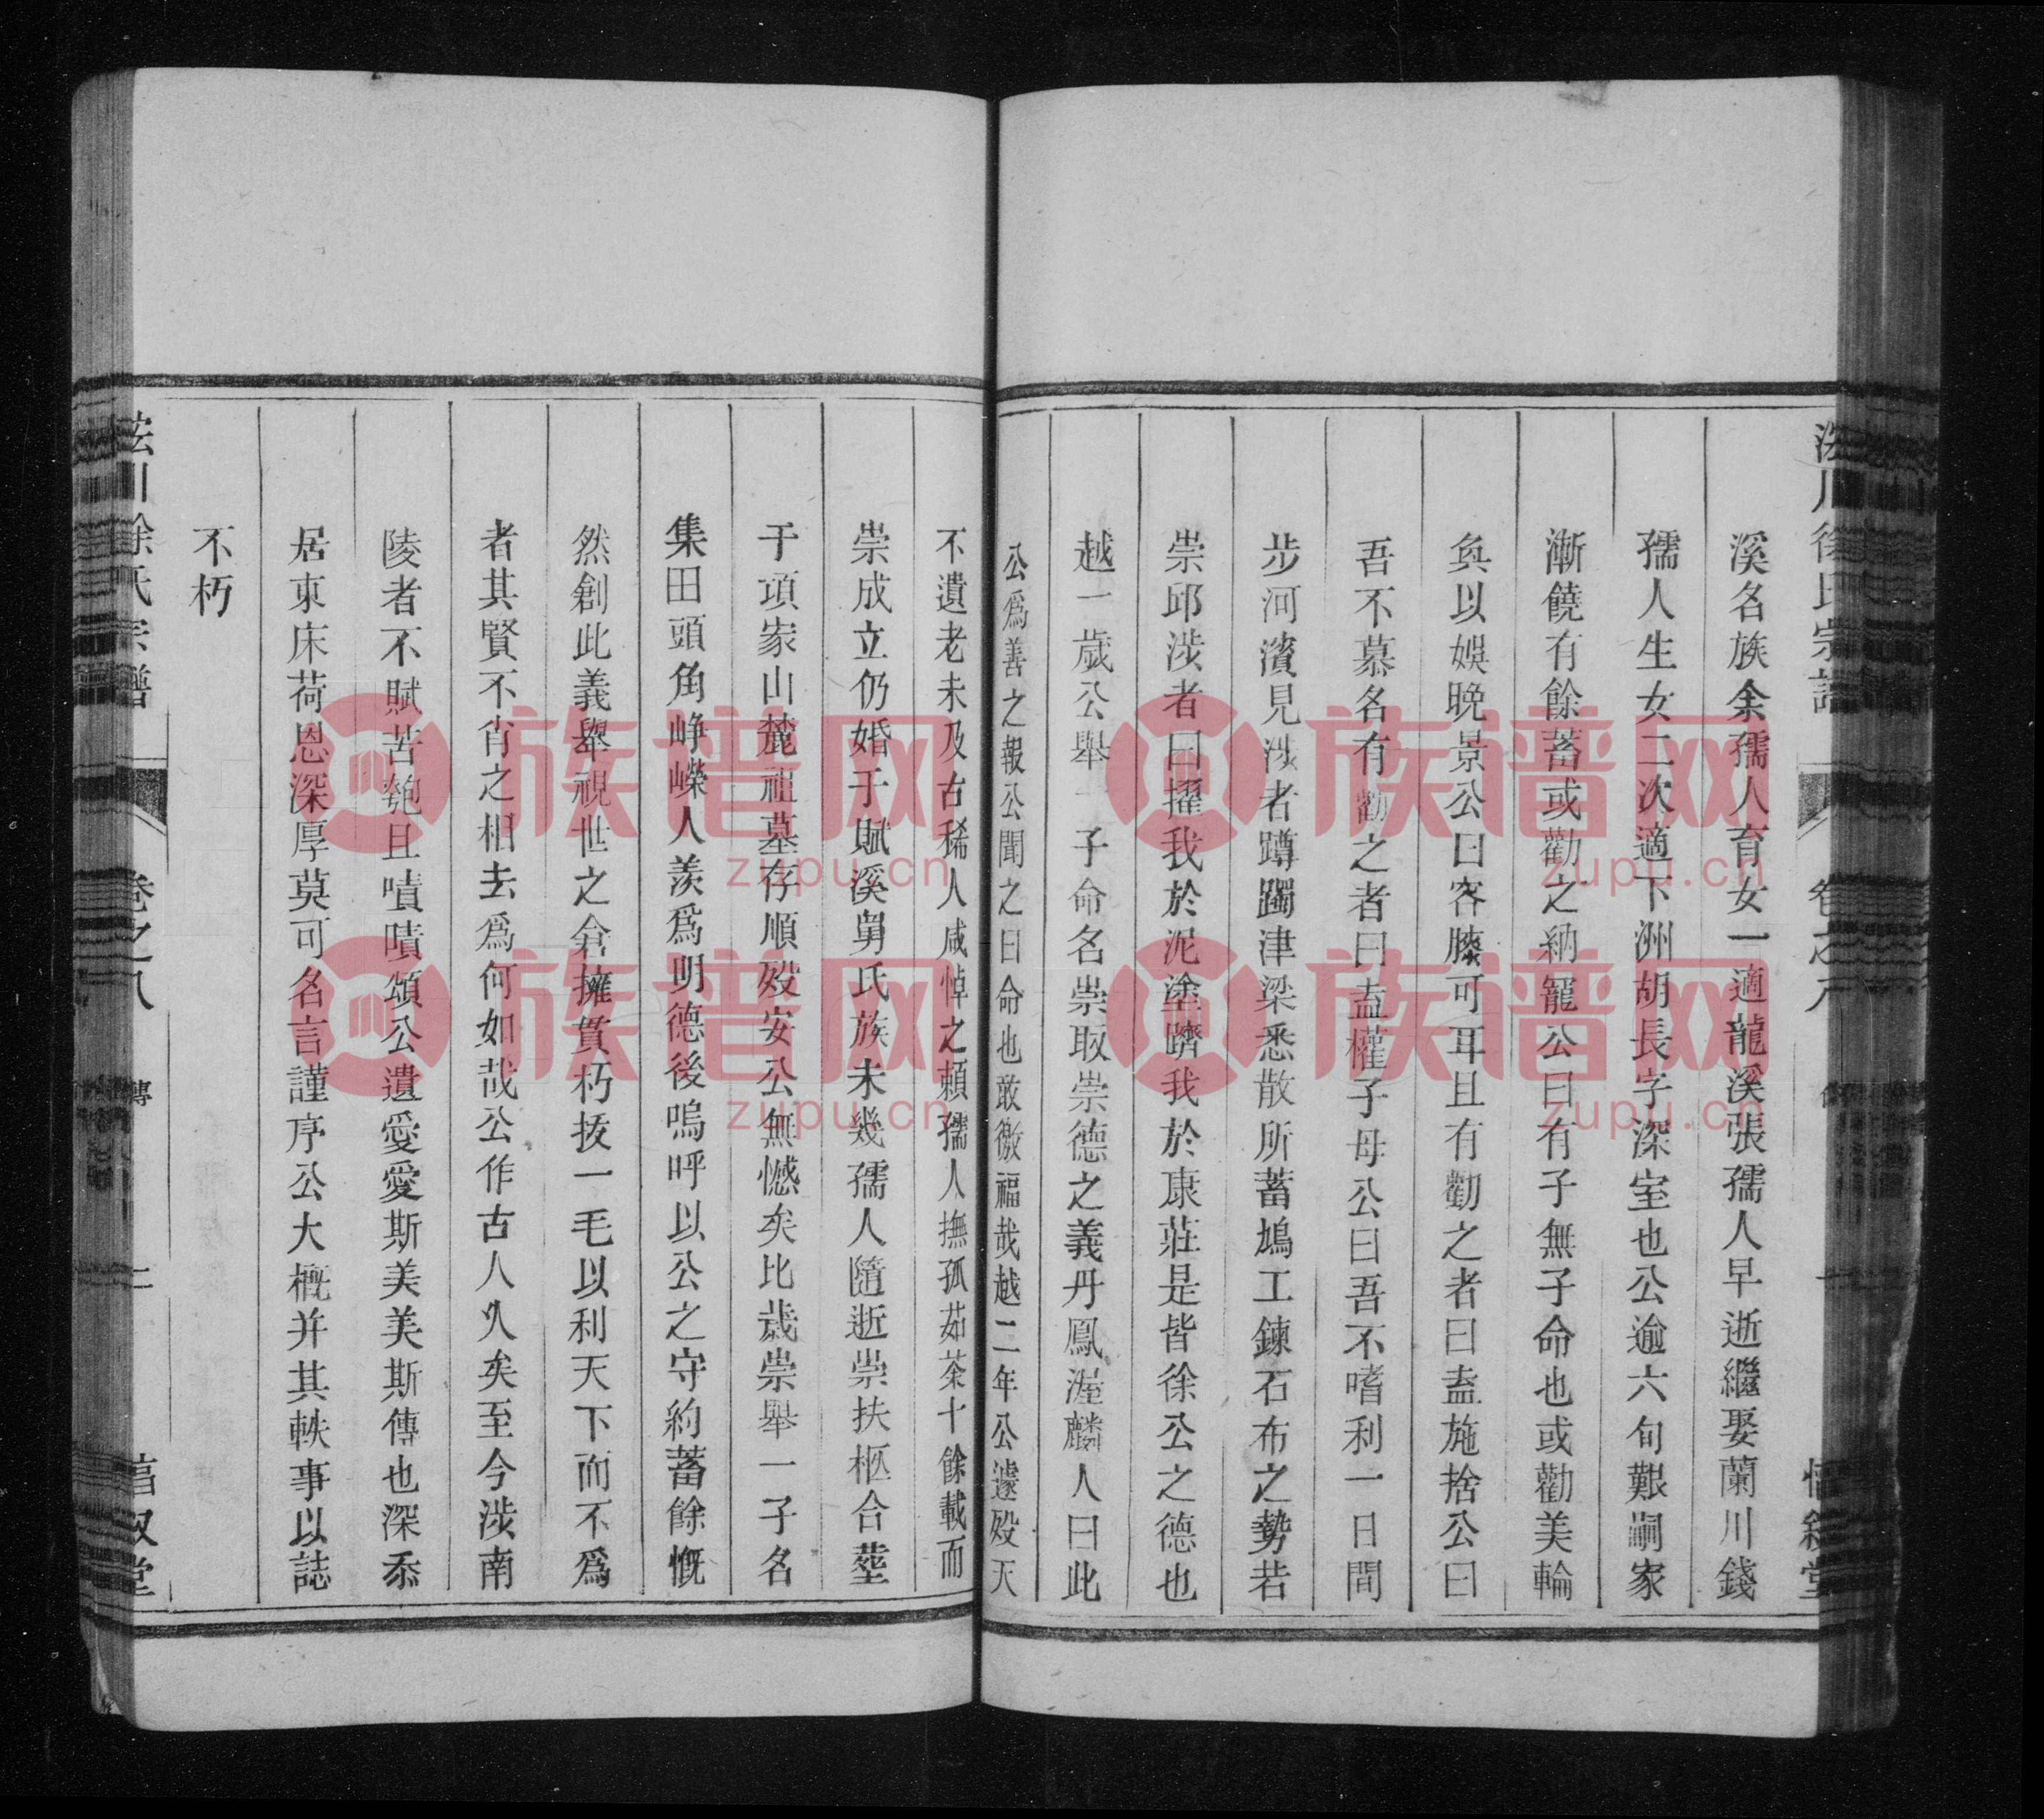 溪名族余孺人育女一適龍溪張孺人早逝繼娶蘭川錢
孺人生女二次適下洲胡長字深室也公逾六旬艱嗣家
漸饒有餘蓄或勸之納寵公曰有子無子命也或勸美輪
奐以娛晚景公曰容膝可耳且有勸之者曰盍施捨公曰
吾不慕名有勸之者曰盍權子母公曰吾不嗜利一日間
步河濱見涉者蹲躅津梁悉散所蓄鳩工鍊石布之勢若
崇邱涉者曰擢我於泥塗躋我於康莊是皆徐公之德也
越一歲公舉一子命名崇取崇德之義丹鳳渥麟人曰此
公爲善之報公聞之曰命也敢徼福哉越二年公遽歿天
不遺老未及古稀人咸悼之賴孺人撫孤茹荼十餘載而
崇成立仍婚于賦溪舅氏族未幾孺人隨逝崇扶柩合塟
于項家山麓祖墓存順歿安公無憾矣比歲崇舉一子名
集田頭角崢嶸人羨爲明德後嗚呼以公之守約蓄餘慨
然創此義舉視世之倉擁貫朽拔一毛以利天下而不爲
者其賢不肖之相去爲何如哉公作古人久矣至今涉南
陵者不賦苦匏且嘖嘖頌公遺愛愛斯美美斯傳也深忝
居東床荷恩深厚莫可名言謹序公大概并其軼事以誌
不朽
川徐氏宗譜
卷之八
傳
二
敘堂
族谱网
zupu.cn
族谱网
zupu.cn
族谱网
zupu.cn
族谱网
zupu.cn